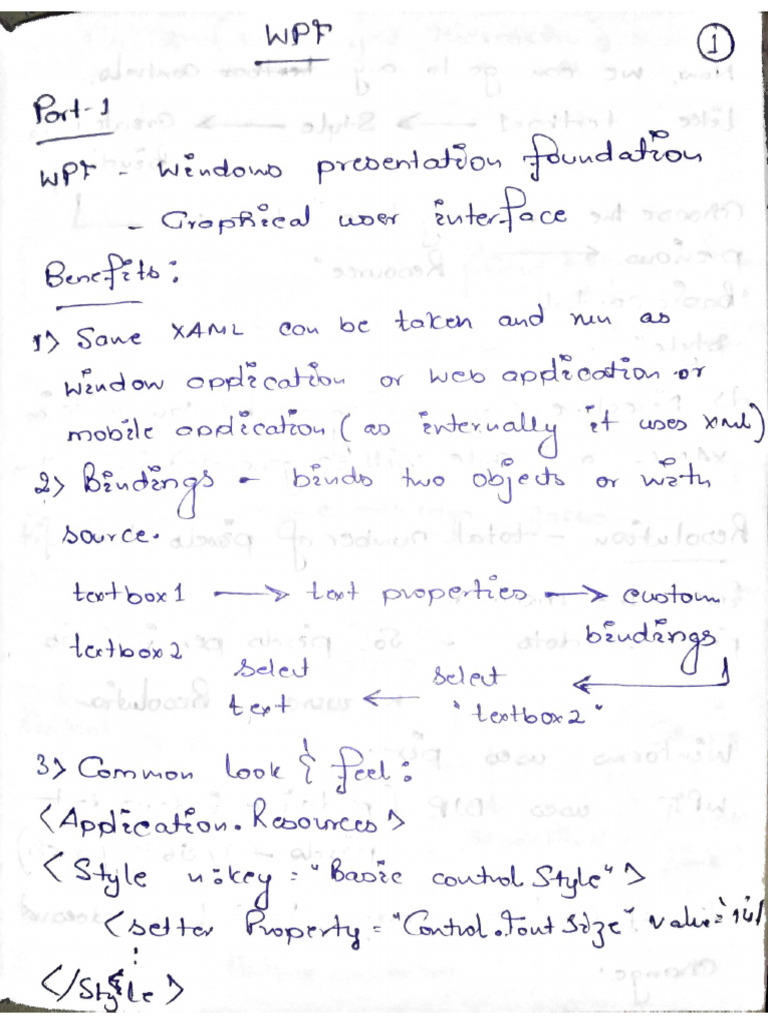 WPF
1
Part-1
WPF - Windows presentation foundation
- Graphical user interface
Benefits:
1) Same XAML can be taken and run as
window application or web application or
mobile application (as internally it uses xml)
2) Bindings - binds two objects or with
source.
textbox1 → text properties → custom
bindings
textbox2
select text ← select "textbox2" ←
3) Common look & feel:
<Application.Resources>
<Style x:key = "Basic control Style">
<setter Property = "Control.Font Size" value='14'/
:
</Style>